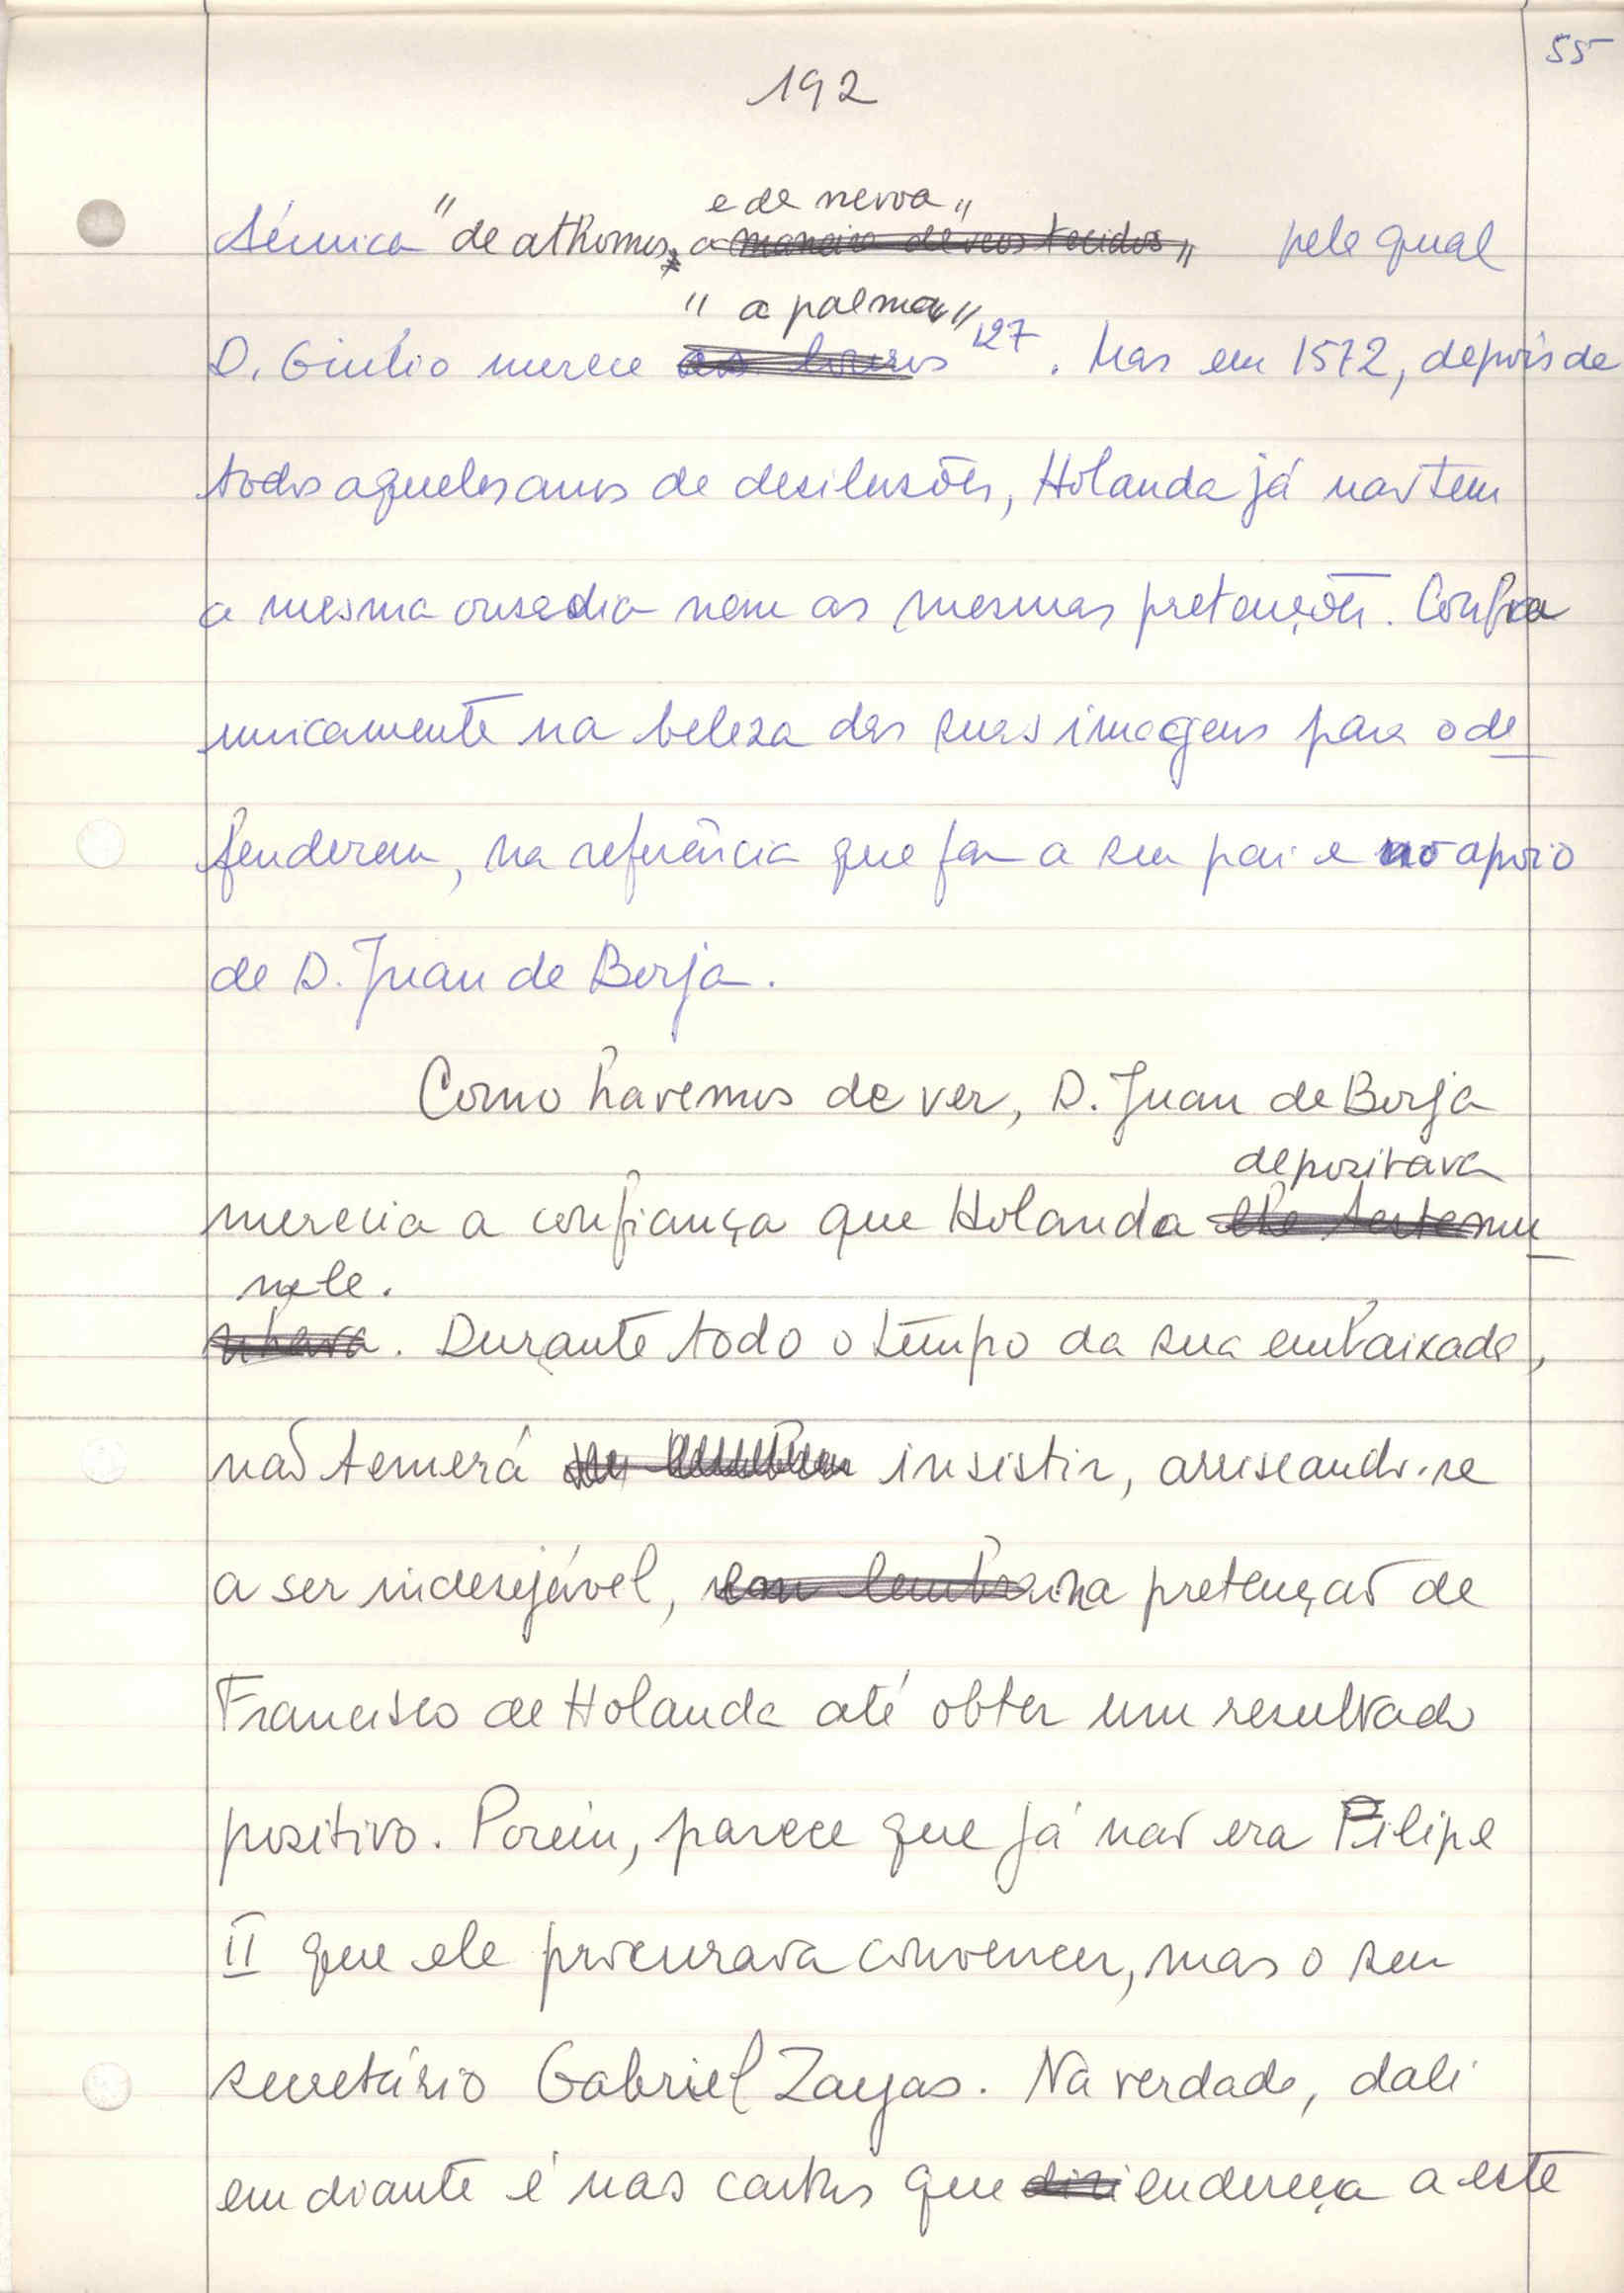 55
192
e de nevoa"
técnica "de athomos, a maneira de seos tecidos" pela qual
" a palma"
D. Giulio merece os louros 127. Mas em 1572, depois de
todos aqueles anos de desilusões, Holanda já não tem
a mesma ousadia nem as mesmas pretenções. Confia
unicamente na beleza das suas imagens para o de
fenderem, na referência que faz a seu pai e no apoio
de D. Juan de Borja.
Como havemos de ver, D. Juan de Borja
depositava
merecia a confiança que Holanda lhe testemu
nele.
nhava. Durante todo o tempo da sua embaixada,
não temerá insistir, arriscando-se
a ser indesejável, na pretenção de
Francisco de Holanda até obter um resultado
positivo. Porém, parece que já não era Filipe
II que ele procurava convencer, mas o seu
secretário Gabriel Zayas. Na verdade, dali
em diante é nas cartas que diri endereça a este